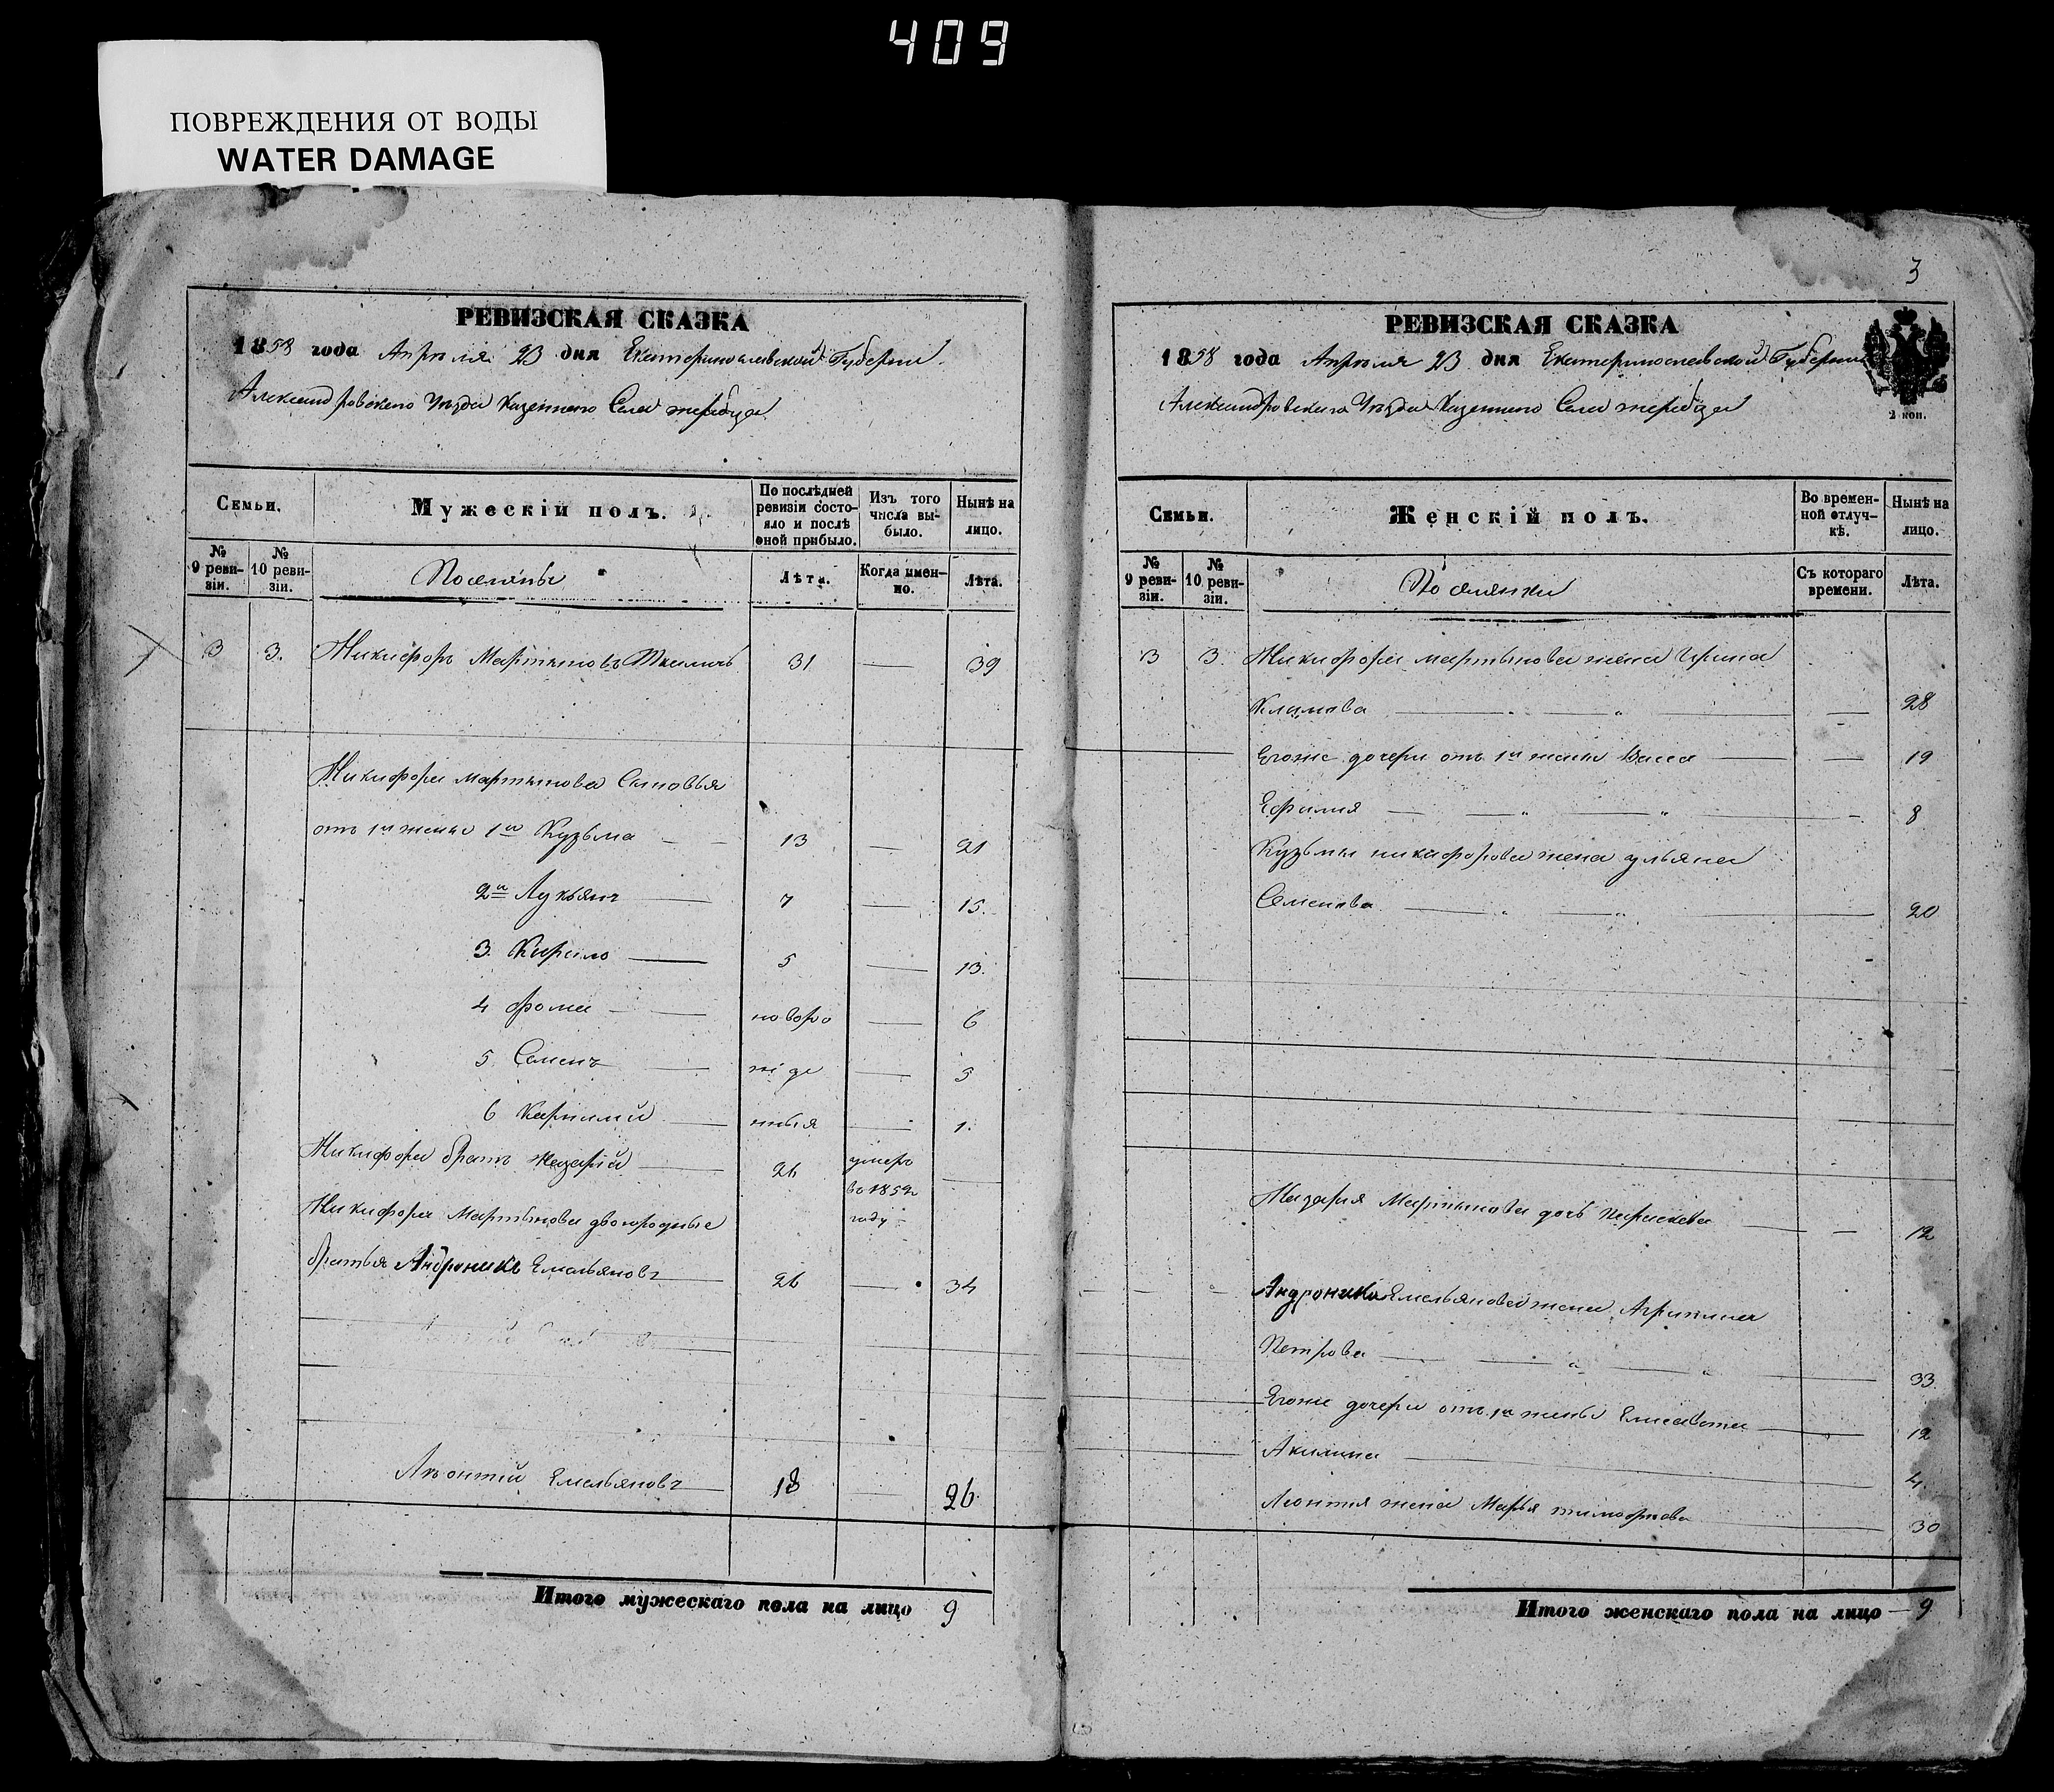 409
ПОВРЕЖДЕНИЯ ОТ ВОДЫ
WATER DAMAGE
РЕВИЗСКАЯ СКАЗКА
1858 года Апреля 23 дня Екатеринославской Губернии
Александровского Уезда Казенного Села Жеребца
Семьи.
Мужескій полъ.
По послѣдней ревизіи состо-
яло и послѣ
оной прибыло.
Изъ того
числа вы-
было.
Нынѣ на
лицо.
№
9 реви-
зіи.
№
10 реви-
зіи.
Поселяны
Лѣта.
Когда имен-
но.
Лѣта.
3 3. Никифоръ Мартыновъ 31 — 39
Никифора Мартынова Сыновья
отъ 1й жены 1й Кузьма 13 — 21
2й Лукьянъ 7 — 15.
3. Кирило 5 — 13.
4 Фома новоро — 6
5 Семенъ жде — 5
6 нныя — 1.
Никифора братъ Назарій 26 умеръ
въ 1852
году
Никифора Мартынова двоюродные
братья Андроникъ Емельяновъ 26 — 34
Леонтій Емельяновъ 18 — 26
Итого мужескаго пола на лицо 9
3
РЕВИЗСКАЯ СКАЗКА
1858 года Апреля 23 дня Екатеринославской Губернии
Александровского Уезда Казенного Села Жеребца
2 коп.
Семьи.
Женскій полъ.
Во времен-
ной отлуч-
кѣ.
Нынѣ на
лицо.
№
9 реви-
зіи.
№
10 реви-
зіи.
Поселянки
Съ котораго
времени.
Лѣта.
3 3. Никифора Мартынова жена Ирина
Климова — 28
Егоже дочери отъ 1й жены Васса — 19
Ефимия — 8
Кузьмы Никифорова жена Ульяна
Семенова 20
Назария Мартынова дочь Параскева — 12
Андроника Емельянова жена Агрипина
Петрова 33
Егоже дочери отъ 1й жены Елисавета 12
Акилина 4.
Леонтия жена Марья Тимофеева 30
Итого женскаго пола на лицо 9